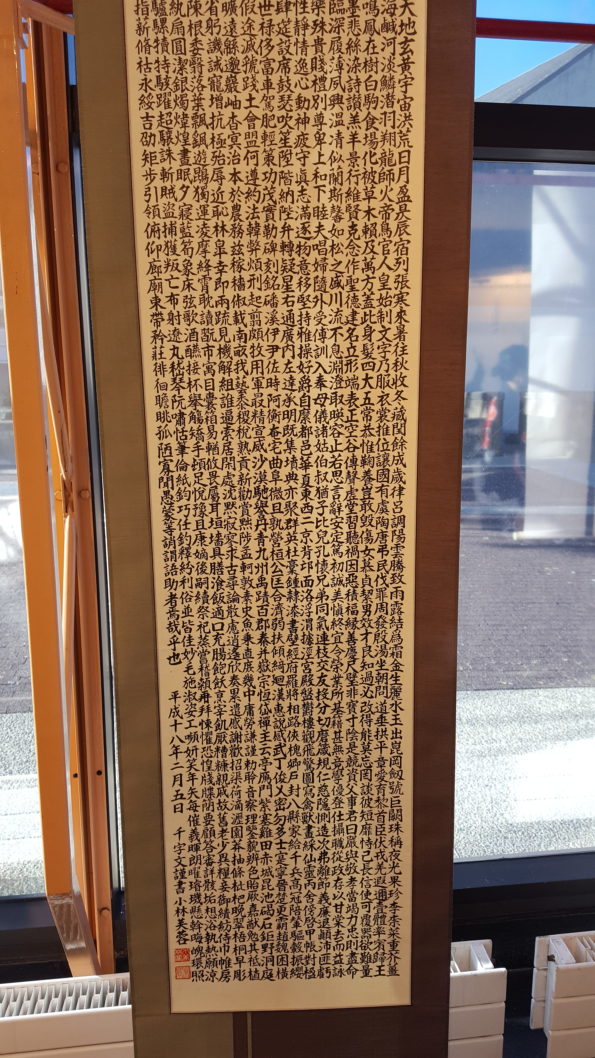 天地玄黃宇宙洪荒日月盈昃辰宿列張寒來暑往秋收冬藏閏餘成歲律呂調陽雲騰致雨露結爲霜金生麗水玉出崑岡劒號巨闕珠稱夜光果珍李柰菜重芥薑
海鹹河淡鱗潛羽翔龍師火帝鳥官人皇始制文字乃服衣裳推位讓國有虞陶唐弔民伐罪周發殷湯坐朝問道垂拱平章愛育黎首臣伏戎羌遐邇壹體率賓歸王
鳴鳳在樹白駒食場化被草木賴及萬方蓋此身髮四大五常恭惟鞠養豈敢毀傷女慕貞絜男效才良知過必改得能莫忘罔談彼短靡恃己長信使可覆器欲難量
墨悲絲染詩讚羔羊景行維賢克念作聖德建名立形端表正空谷傳聲虛堂習聽禍因惡積福緣善慶尺璧非寶寸陰是競資父事君曰嚴與敬孝當竭力忠則盡命
臨深履薄夙興溫凊似蘭斯馨如松之盛川流不息淵澄取映容止若思言辭安定篤初誠美慎終宜令榮業所基籍甚無竟學優登仕攝職從政存以甘棠去而益詠
樂殊貴賤禮別尊卑上和下睦夫唱婦隨外受傅訓入奉母儀諸姑伯叔猶子比兒孔懷兄弟同氣連枝交友投分切磨箴規仁慈隱惻造次弗離節義廉退顛沛匪虧
性靜情逸心動神疲守眞志滿逐物意移堅持雅操好爵自縻都邑華夏東西二京背邙面洛浮渭據涇宮殿盤鬱樓觀飛驚圖寫禽獸畫綵仙靈丙舍傍啓甲帳對楹
肆筵設席鼓瑟吹笙陞階納陛弁轉疑星右通廣內左達承明既集墳典亦聚群英杜稾鍾隸漆書壁經府羅將相路俠槐卿戶封八縣家給千兵高冠陪輦驅轂振纓
世祿侈富車駕肥輕策功茂實勒碑刻銘磻溪伊尹佐時阿衡奄宅曲阜微旦孰營桓公匡合濟弱扶傾綺廻漢惠說感武丁俊乂密勿多士寔寧晉楚更霸趙魏困橫
假途滅虢踐土會盟何遵約法韓弊煩刑起翦頗牧用軍最精宣威沙漠馳譽丹青九州禹跡百郡秦并嶽宗恆岱禪主云亭鴈門紫塞雞田赤城昆池碣石鉅野洞庭
曠遠緜邈巖岫杳冥治本於農務茲稼穡俶載南畝我藝黍稷稅熟貢新勸賞黜陟孟軻敦素史魚秉直庶幾中庸勞謙謹勑聆音察理鑒貌辨色貽厥嘉猷勉其祗植
省躬譏誡寵增抗極殆辱近恥林皋幸卽兩疏見機解組誰逼索居閑處沈默寂寥求古尋論散慮逍遙欣奏累遣慼謝歡招渠荷滴瀝園莽抽條枇杷晚翠梧桐早彫
陳根委翳落葉飄颻遊鵾獨運凌摩絳霄耽讀翫市寓目囊箱易輶攸畏屬耳垣墻具膳湌飯適口充腸飽飫烹宰飢厭糟糠親戚故舊老少異糧妾御績紡侍巾帷房
紈扇圓潔銀燭煒煌晝眠夕寢藍筍象床弦歌酒讌接杯舉觴矯手頓足悅豫且康嫡後嗣續祭祀蒸嘗稽顙再拜悚懼恐惶牋牒簡要顧答審詳骸垢想浴執熱願涼
驢騾犢特駭躍超驤誅斬賊盜捕獲叛亡布射遼丸嵇琴阮嘯恬筆倫紙鈞巧任釣釋紛利俗並皆佳妙毛施淑姿工嚬姸笑年矢每催羲暉朗曜琁璣懸斡晦魄環照
指薪脩祜永綏吉劭矩步引領俯仰廊廟束帶矜莊徘徊瞻眺孤陋寡聞愚蒙等誚謂語助者焉哉乎也 平成十八年二月五日 千字文謹書 小林芙蓉